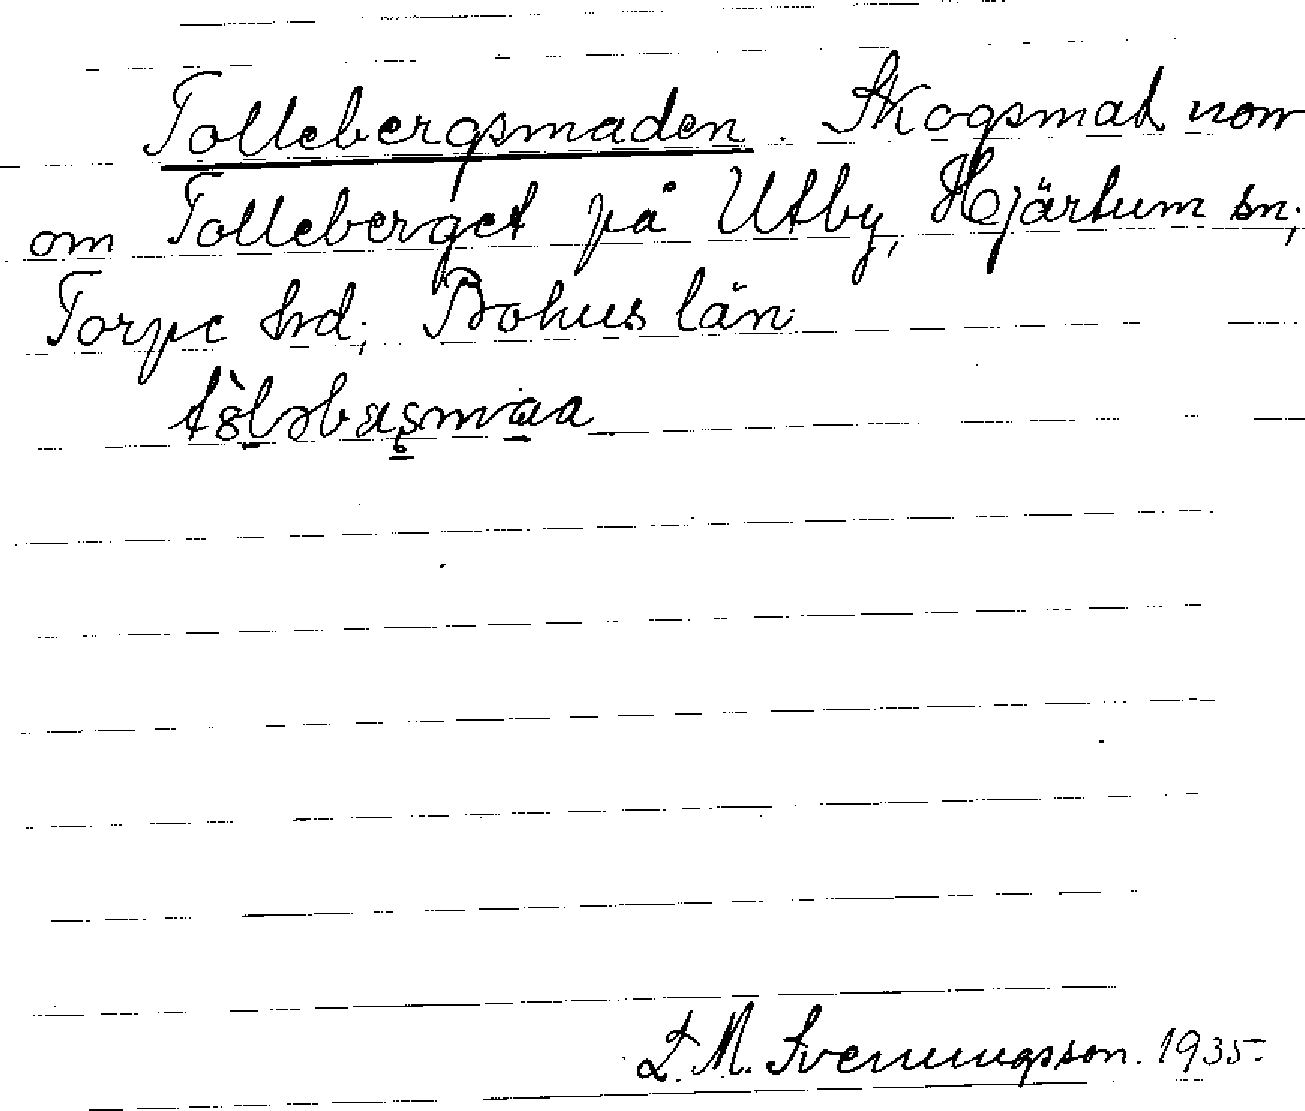 Tollebergsmaden. Skogsmad norr
om Tolleberget på Utby, Hjärtum sn;
Torpe hrd; Bohus län
L. M. Svenungsson. 1935.